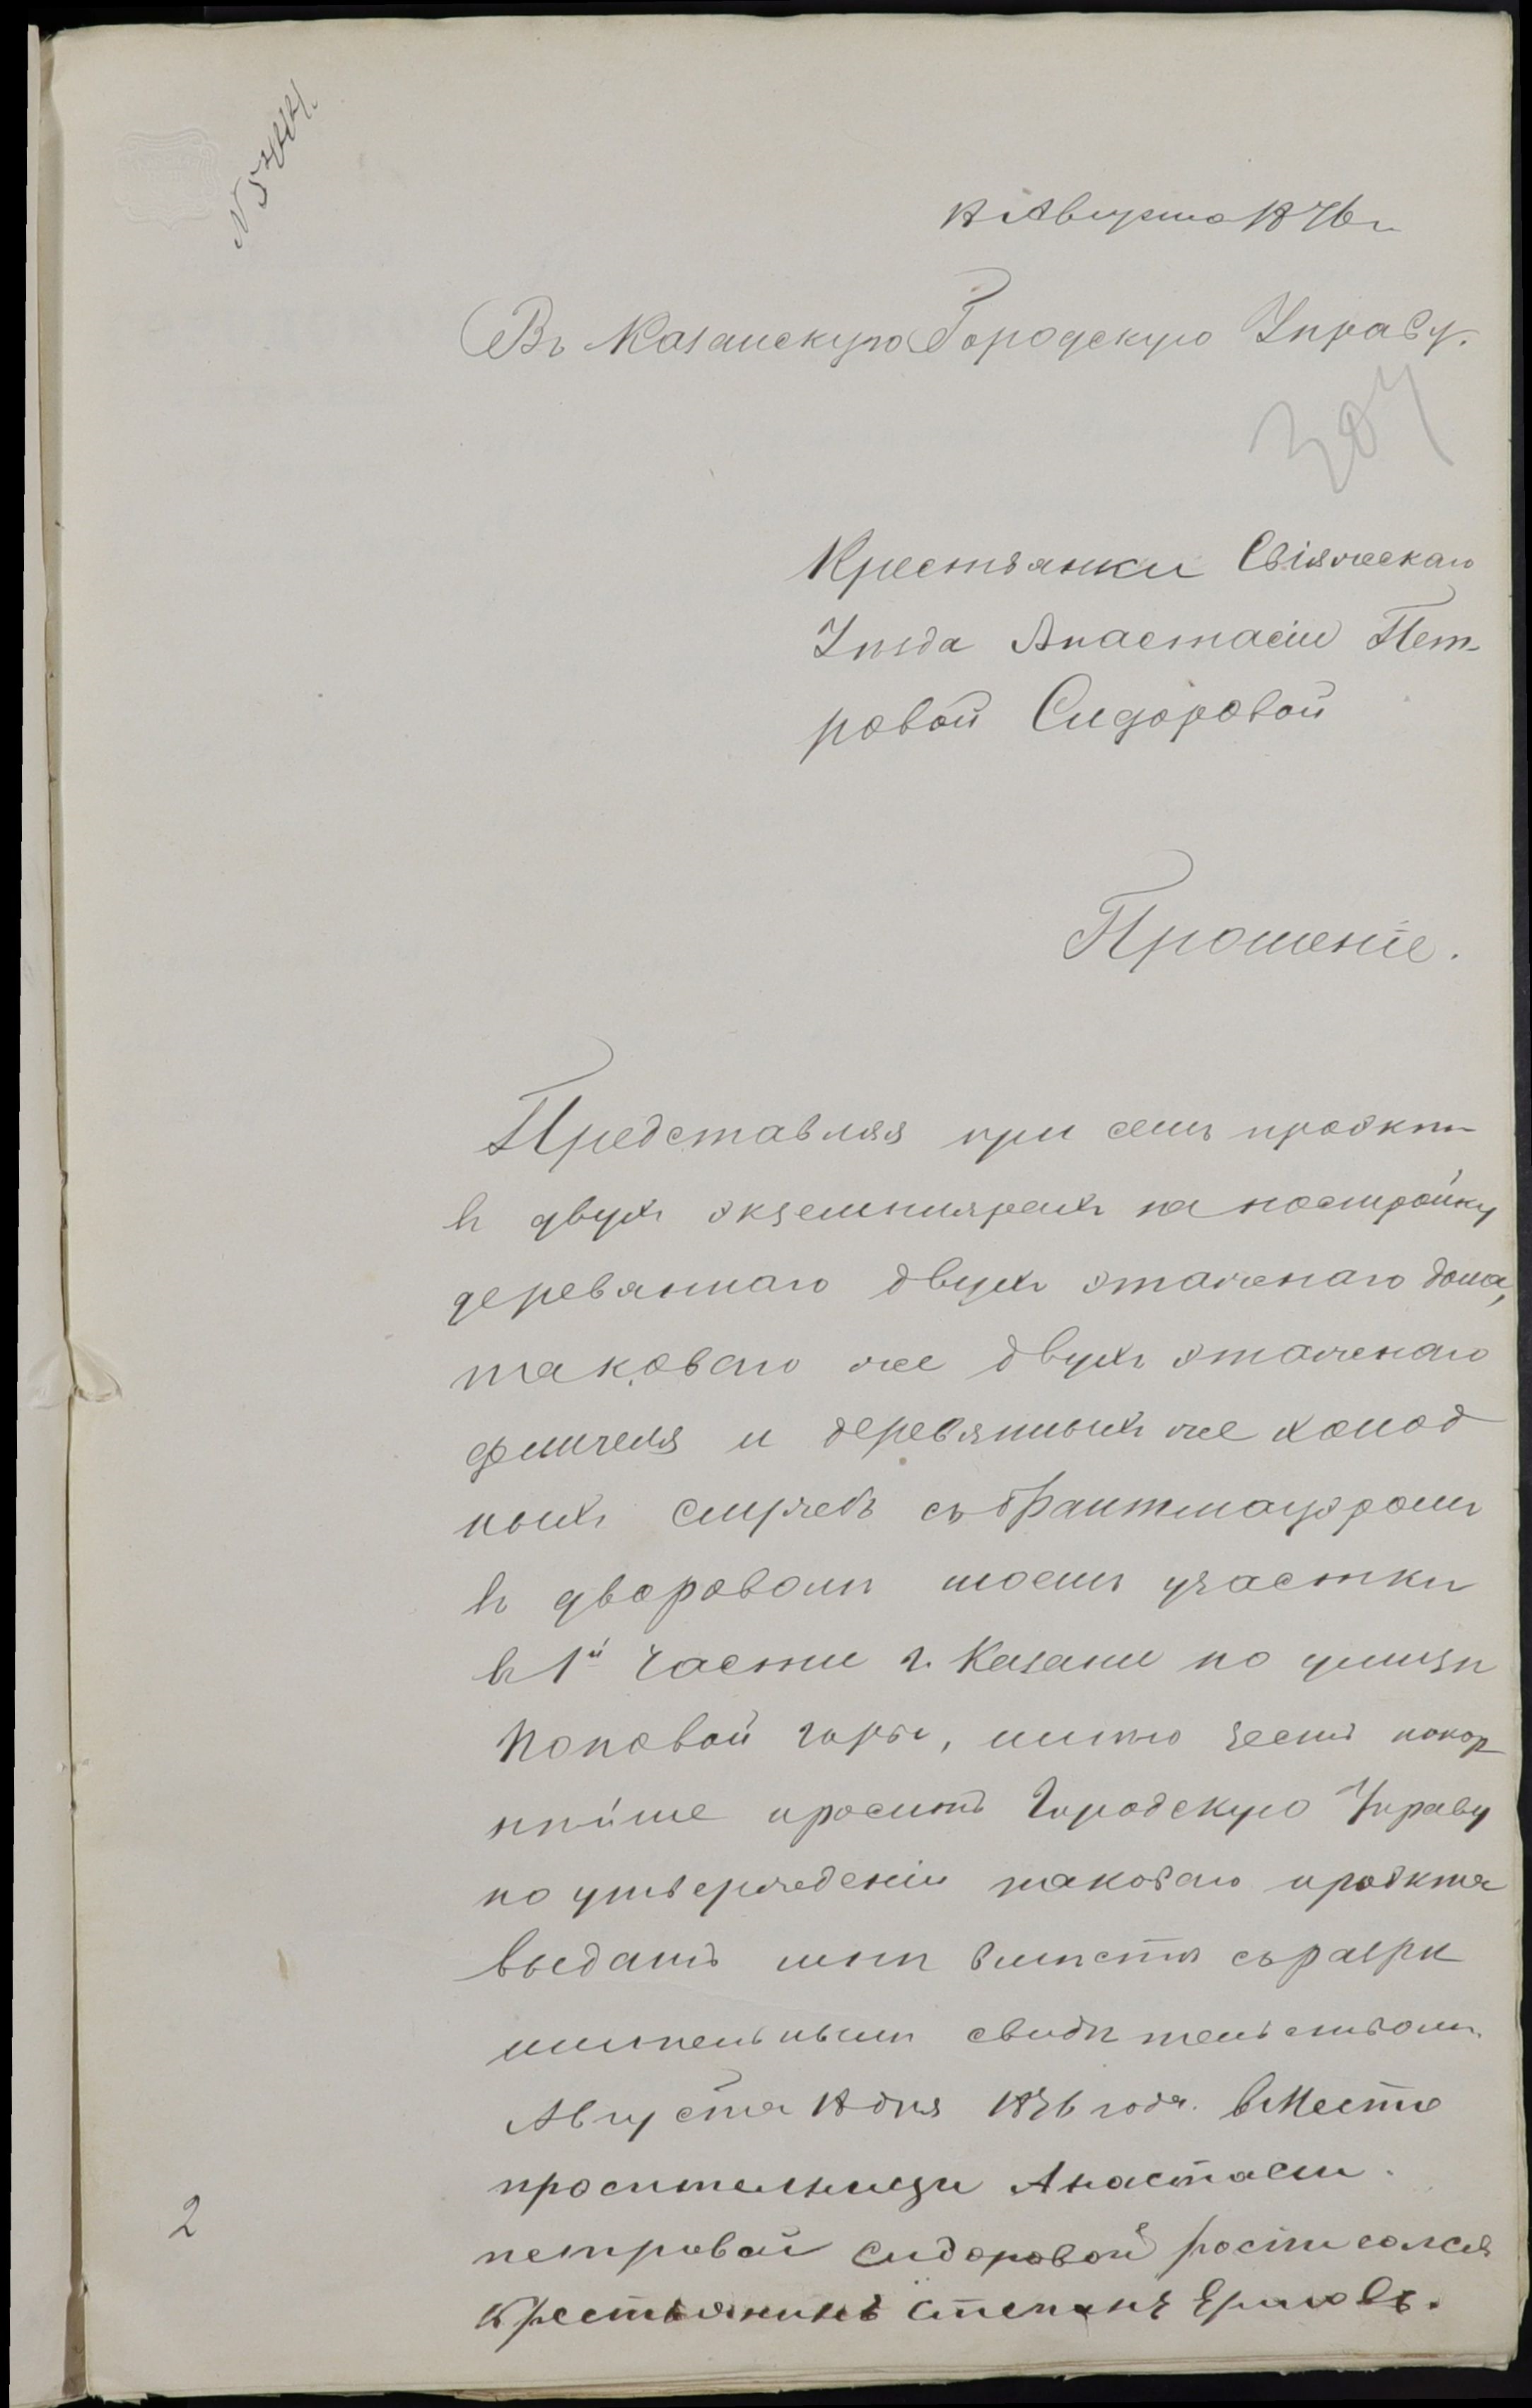 18 Августа 1876 г.
Въ Казанскую Городскую Управу.
304
Крестьянки Свіяжскаго
Уѣзда Анастасіи Пет-
ровой Сидоровой
Прошеніе.
Представляя при семъ проэктъ
въ двухъ экземплярахъ на постройку
деревяннаго двухъ этажнаго дома,
таковаго же двухъ этажнаго
флигеля и деревянныхъ же холод
ныхъ службъ съ брантмауэромъ
въ дворовомъ моемъ участкѣ
въ 1й части г. Казани по улицѣ
Поповой горы, имѣю честь покор
нѣйше просить Городскую Управу
по утвержденіи таковаго проэкта
выдать мнѣ вмѣстѣ съ разрѣ
шительнымъ свидѣтельствомъ.
Августа 18 дня 1876 года. вместо
просительницы Анастасеи
петровай Сидоровой росписался
крестьянинъ Степанъ
2